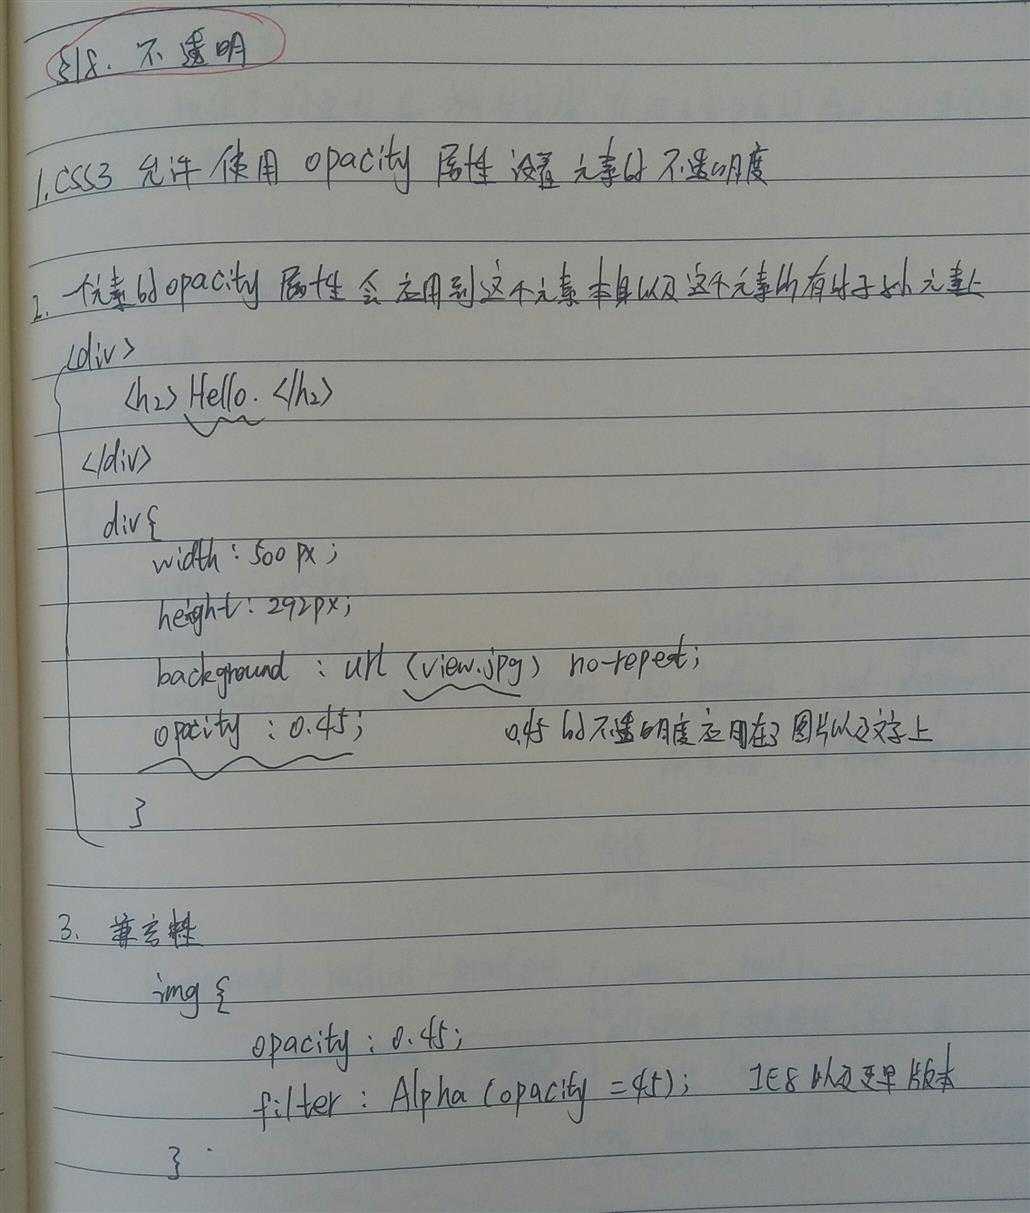 §18. 不透明
1. CSS3 允许使用 opacity 属性设置元素的不透明度
2. 一个元素的opacity 属性会应用到这个元素本身以及这个元素所有的子元素上
<div>
<h2> Hello. </h2>
</div>
div{
width : 500 px ;
height : 292px;
background : url (view.jpg) no-repeat;
opacity : 0.45; 0.45 的不透明度应用在了图片以及文字上
}
3. 兼容性
img {
opacity : 0.45;
filter : Alpha (opacity = 45); IE8 以及更早版本
}